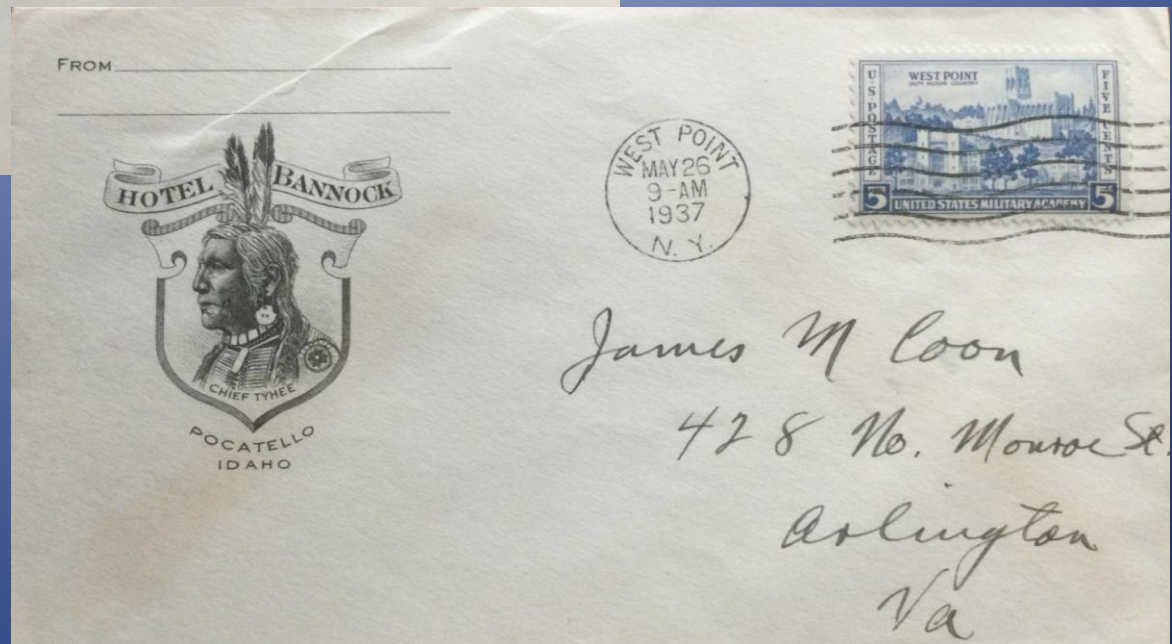 FROM
HOTEL BANNOCK
CHIEF TYHEE
POCATELLO
IDAHO
WEST POINT
MAY 26
9-AM
1937
N. Y.
WEST POINT
DUTY HONOR COUNTRY
U·S·POSTAGE
FIVE CENTS
5 UNITED STATES MILITARY ACADEMY 5
James M Coon
428 No. Monroe St.
Arlington
Va